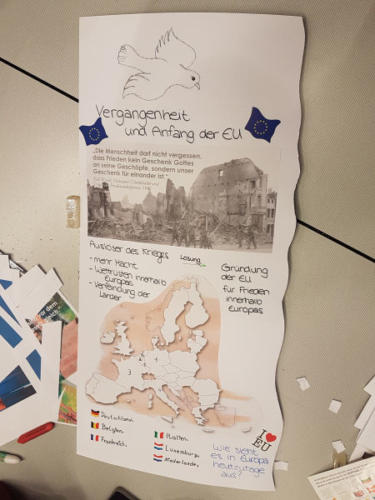 Vergangenheit
und Anfang der EU
„Die Menschheit darf nicht vergessen,
dass Frieden kein Geschenk Gottes
an seine Geschöpfe, sondern unser
Geschenk für einander ist."
Auslöser des Krieges
- mehr Macht
- Wettrüsten innerhalb
Europas
- Verbindung der
Länder
Lösung
Gründung
der EU
für Frieden
innerhalb
Europas
Deutschland
Belgien
Frankreich
Italien
Luxemburg
Niederlande
I ♥
EU
Wie sieht
es in Europa
heutzutage
aus?